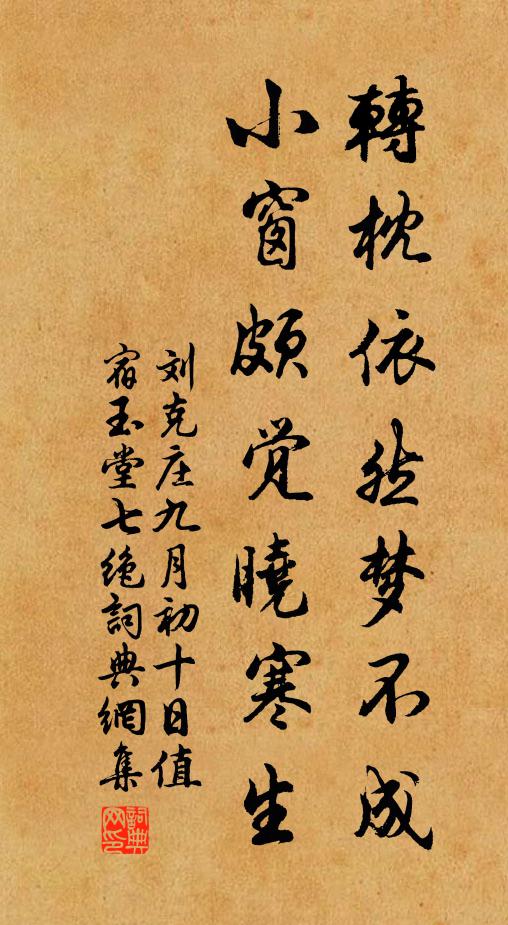 轉枕依然梦不成
小窗頗覺曉寒生
刘克庄九月初十日值
宿玉堂七绝詞典網集
詞典网印